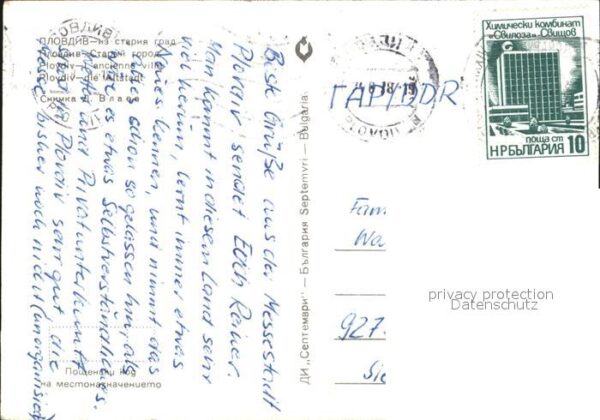 ПЛОВДИВ — из стария град
Пловдив. Старый город
Plovdiv. L'ancienne ville
Plovdiv — die Altstadt
Снимка Д. Влаев
Beste Grüße aus der Messestadt
Plovdiv sendet Euch Reiner.
Man kommt in diesem Land sehr
viel herum, lernt immer etwas
Neues kennen, und nimmt das
alles schon so gelassen hin, als
wäre es etwas Selbstverständliches.
Wetter und Privatunterkunft
sind in Plovdiv sehr gut, die
Messe bisher noch nicht (unorganisiert
Пощенски код
на местоназначението
ДИ „Септември" — България Septemvri — Bulgaria
ПЛОВДИВ
PLOVDIV
ГДР/DDR
Химически комбинат
"Свилоза" Свищов
поща ст
НР БЪЛГАРИЯ 10
Fam
Wa
927
Sie
privacy protection
Datenschutz